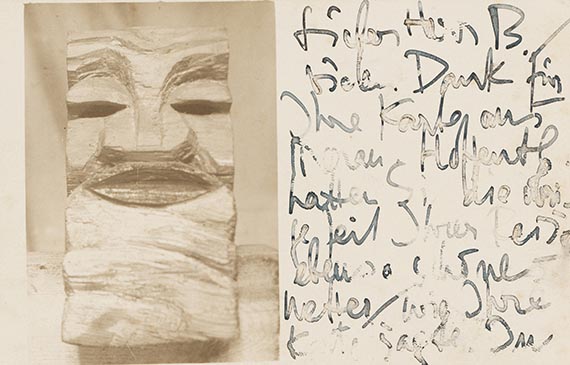 Lieber Herr B.
viel. Dank für
Ihre Karte aus
Hoffentl.
hatten Sie die
Zeit Ihrer Reise
ebenso schöne
Wetter, wie Ihre
Karte sagte.